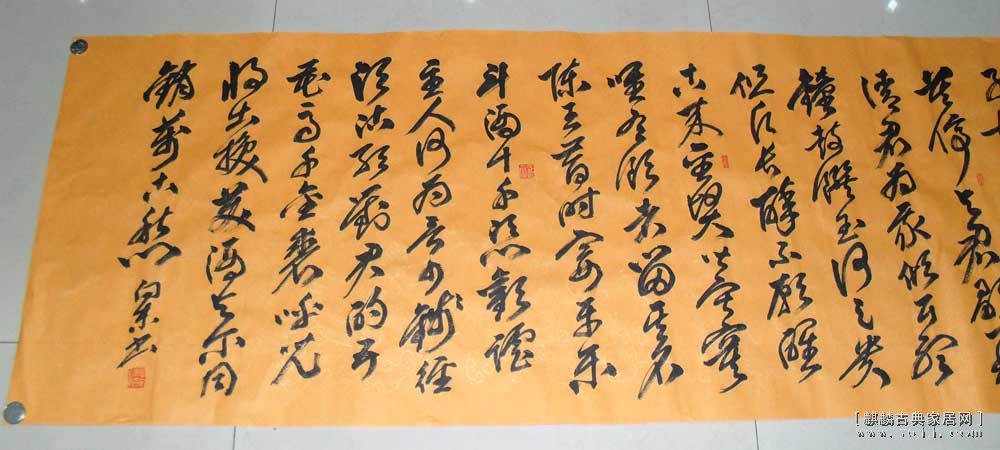 莫停与君歌一
请君为我倾耳听
鐘鼓饌玉何足贵
但愿长醉不愿醒
古来圣贤皆寂寞
唯有饮者留其名
陈王昔时宴平乐
斗酒十千恣歡谑
主人何为言少钱径
须沽取对君酌五
花马千金裘呼儿
将出换美酒与尔同
销万古愁 书
[麒麟古典家居网]